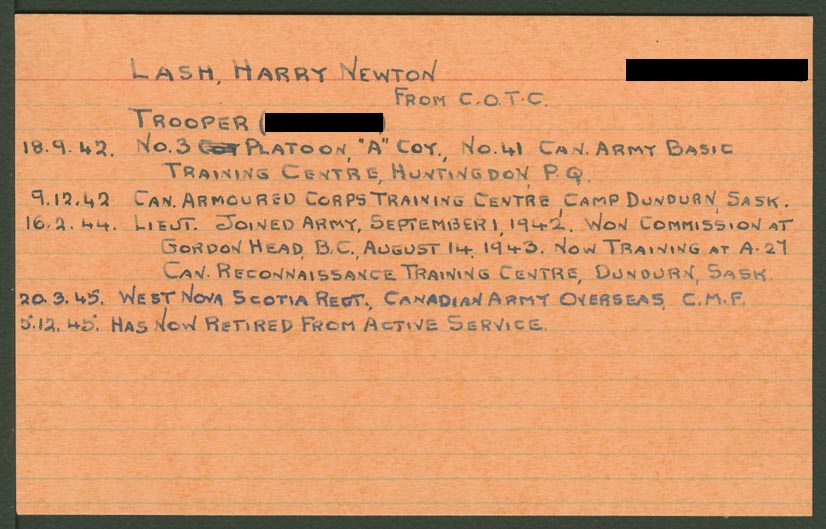 LASH, HARRY NEWTON
FROM C.O.T.C.
TROOPER (
18.9.42. NO.3 PLATOON, "A" COY., NO.41 CAN. ARMY BASIC
TRAINING CENTRE, HUNTINGDON, P.Q.
9.12.42 CAN. ARMOURED CORPS TRAINING CENTRE, CAMP DUNDURN, SASK.
16.2.44. LIEUT. JOINED ARMY, SEPTEMBER 1, 1942. WON COMMISSION AT
GORDON HEAD, B.C., AUGUST 14, 1943. NOW TRAINING AT A-27
CAN. RECONNAISSANCE TRAINING CENTRE, DUNDURN, SASK.
20.3.45. WEST NOVA SCOTIA REGT., CANADIAN ARMY OVERSEAS, C.M.F.
5.12.45. HAS NOW RETIRED FROM ACTIVE SERVICE.